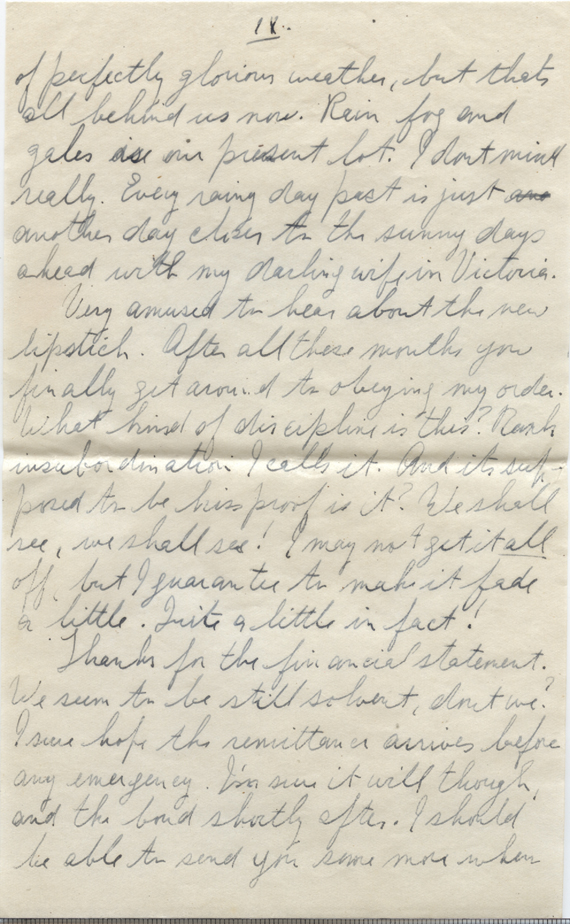 IV.
of perfectly glorious weather, but thats
all behind us now. Rain fog and
gales are our present lot. I dont mind
really. Every rainy day past is just
another day closer to the sunny days
ahead with my darling wife in Victoria.
Very amused to hear about the new
lipstick. After all these months you
finally get around to obeying my order.
What kind of discipline is this? Rank
insubordination I calls it. And its sup-
posed to be kiss proof is it? We shall
see, we shall see! I may not get it all
off, but I guarantee to make it fade
a little. Quite a little in fact!
Thanks for the financial statement.
We seem to be still solvent, dont we?
I sure hope the remittance arrives before
any emergency. I'm sure it will though,
and the bond shortly after. I should
be able to send you some more when